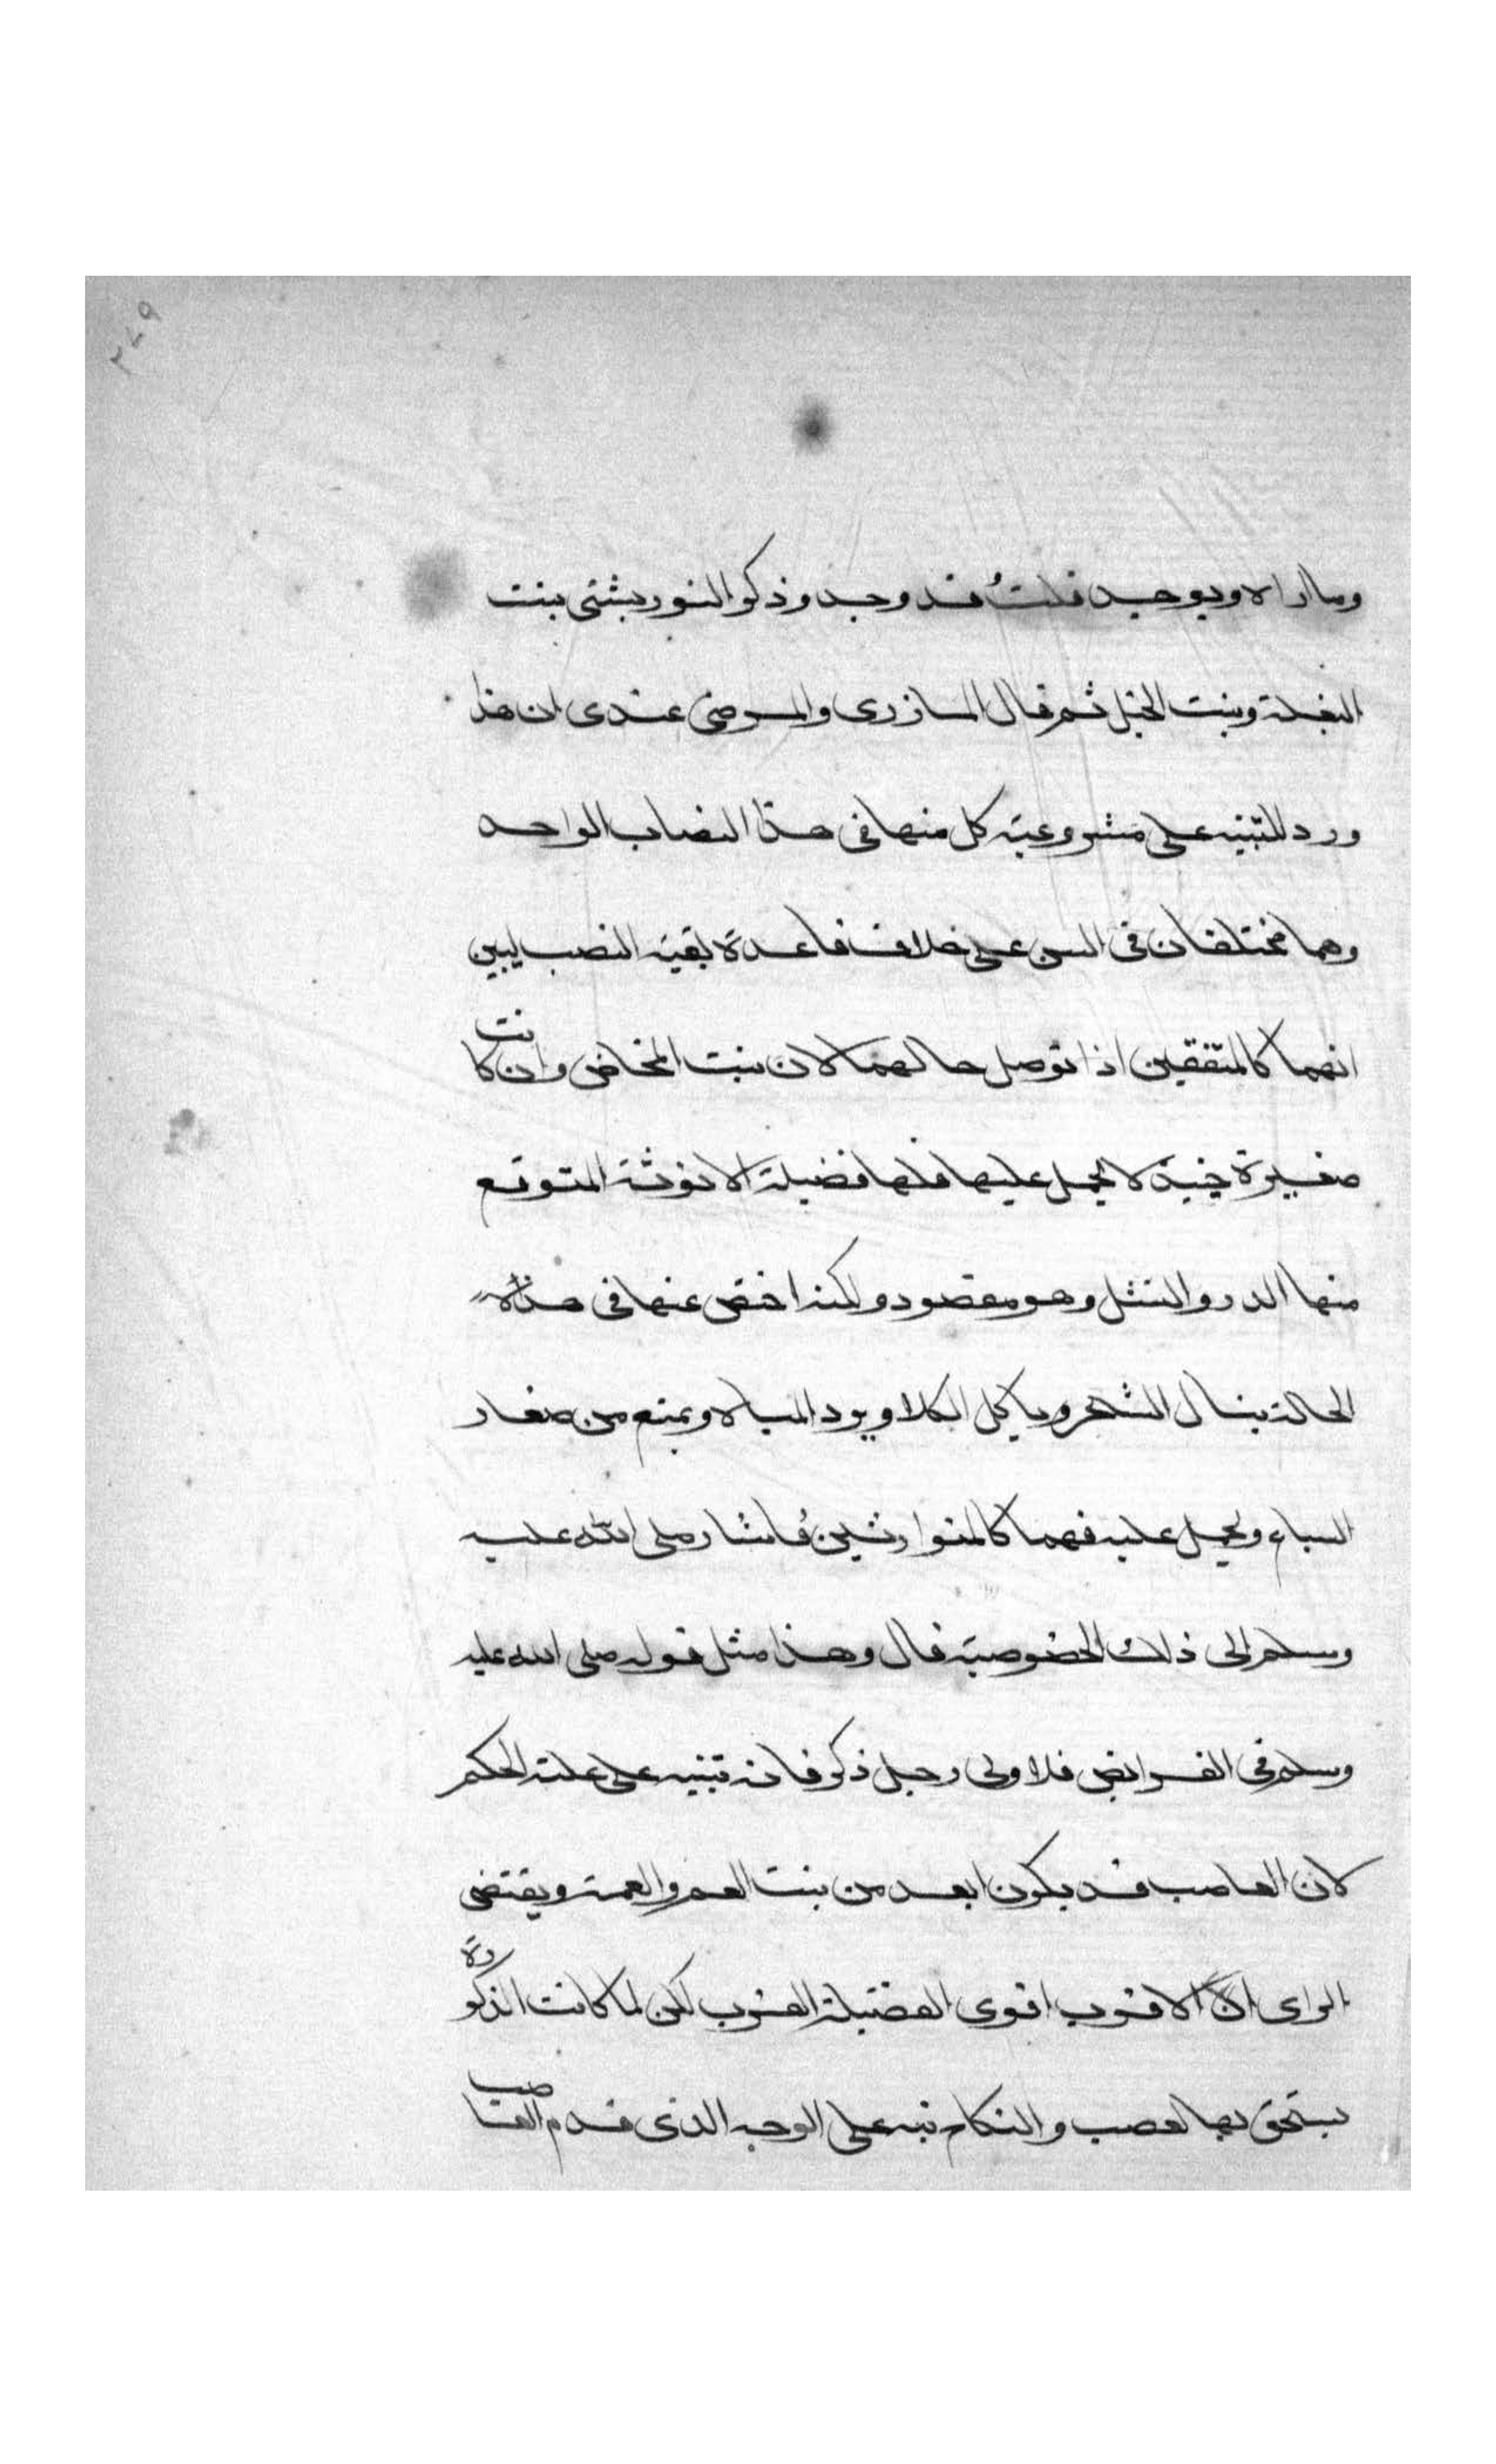 ٢٤٩
وما اراه ويوحيد قلتُ قد وجد وذكر التوربشتي بنت
البغلة وبنت الخيل ثم قال المازري والمرضي عندي ان هذا
ورد للتنبيه على مشروعية كل منها في هذا النصاب الواحد
وهما مختلفان في السن على خلاف قاعدة بقية النصب ليبين
انهما كالمتفقين اذا توصل حالهما لان بنت المخاض وان كانت
صغيرة جنية لا يحمل عليها فلها فضيلة الانوثة المتوقع
منها الدر والنسل وهو مقصود ولكنه اختص عنها في هذه
الحالة ينال الشجر وياكل الكلا ويرد المياه ويمتنع من صغار
السباع ويحمل عليه فهما كالمتوازنين فاشار صلى الله عليه
وسلم الى ذلك الخصوصية قال وهذا مثل قوله صلى الله عليه
وسلم في الفرائض فلاولى رجل ذكر فانه تنبيه على علة الحكم
لان العاصب قد يكون ابعد من بنت العم والعمة ويقتضي
الراى انّ الاقرب اقوى لفضيلة القرب لكن لما كانت الذكورة
يستحق بها لعصب والنكاح نبه على الوجه الذي قدم العاصب